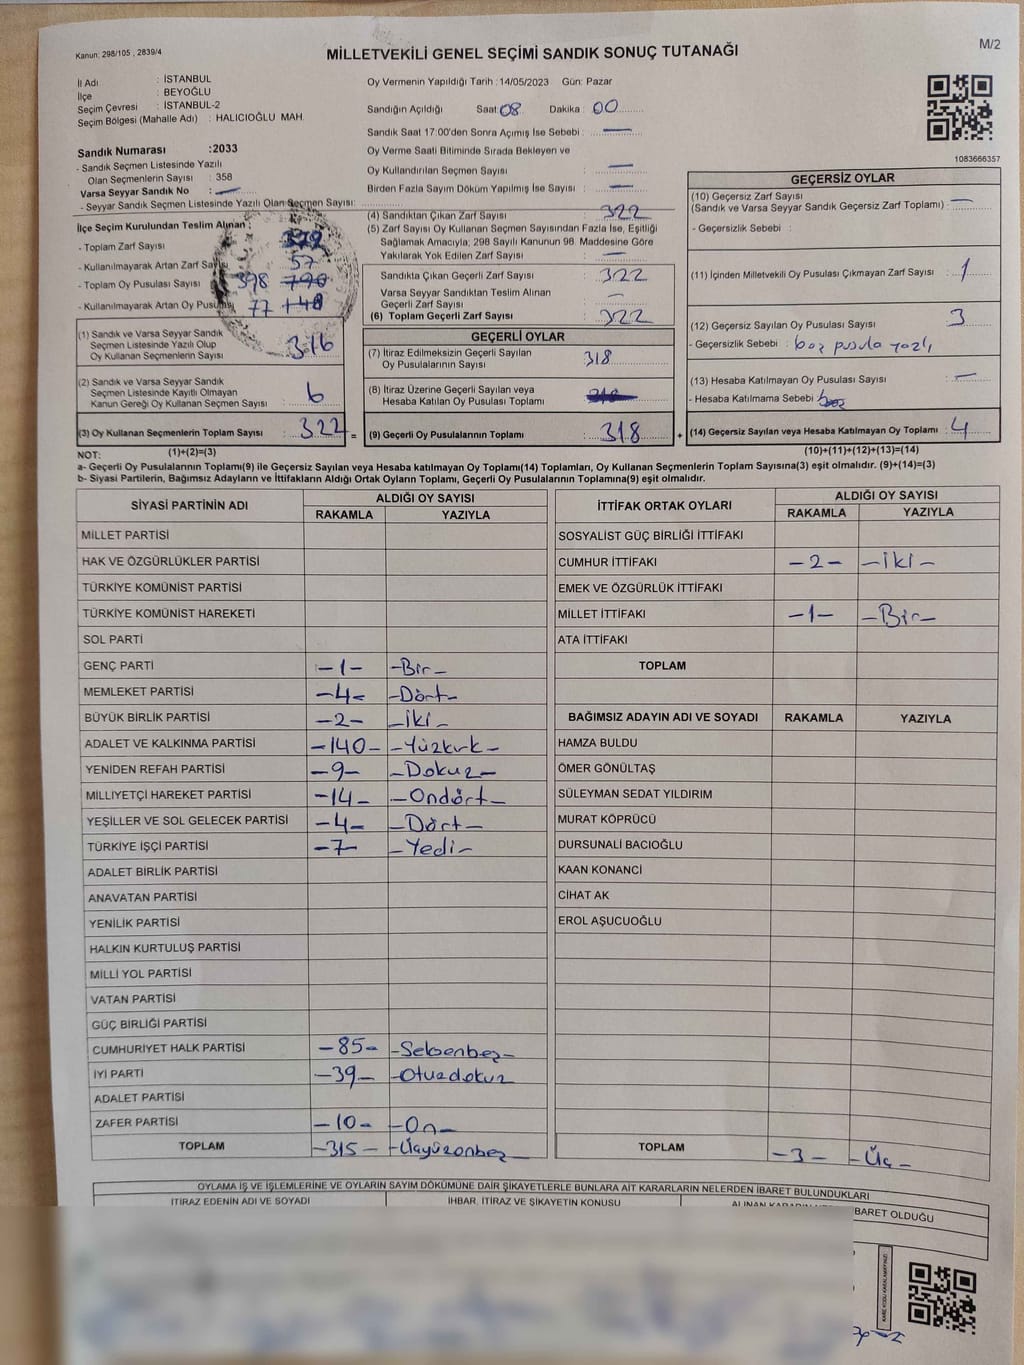 Kanun: 298/105 , 2839/4
MİLLETVEKİLİ GENEL SEÇİMİ SANDIK SONUÇ TUTANAĞI
M/2
İl Adı : İSTANBUL
İlçe : BEYOĞLU
Seçim Çevresi : İSTANBUL-2
Seçim Bölgesi (Mahalle Adı) : HALICIOĞLU MAH.
Oy Vermenin Yapıldığı Tarih : 14/05/2023 Gün: Pazar
Sandığın Açıldığı Saat 08 Dakika : 00
Sandık Saat 17:00'den Sonra Açımış İse Sebebi : —
Oy Verme Saati Bitiminde Sırada Bekleyen ve
Oy Kullandırılan Seçmen Sayısı —
Birden Fazla Sayım Döküm Yapılmış İse Sayısı —
1083666357
Sandık Numarası :2033
- Sandık Seçmen Listesinde Yazılı
Olan Seçmenlerin Sayısı : 358
Varsa Seyyar Sandık No : —
- Seyyar Sandık Seçmen Listesinde Yazılı Olan Seçmen Sayısı:
İlçe Seçim Kurulundan Teslim Alınan ;
- Toplam Zarf Sayısı
- Kullanılmayarak Artan Zarf Sayısı 57
- Toplam Oy Pusulası Sayısı 398 790
- Kullanılmayarak Artan Oy Pusulası 77 148
(1) Sandık ve Varsa Seyyar Sandık
Seçmen Listesinde Yazılı Olup
Oy Kullanan Seçmenlerin Sayısı : 316
(2) Sandık ve Varsa Seyyar Sandık
Seçmen Listesinde Kayıtlı Olmayan
Kanun Gereği Oy Kullanan Seçmen Sayısı : 6
(3) Oy Kullanan Seçmenlerin Toplam Sayısı : 322 =
(1)+(2)=(3)
(4) Sandıktan Çıkan Zarf Sayısı 322
(5) Zarf Sayısı Oy Kullanan Seçmen Sayısından Fazla İse, Eşitliği
Sağlamak Amacıyla, 298 Sayılı Kanunun 98. Maddesine Göre
Yakılarak Yok Edilen Zarf Sayısı : —
Sandıkta Çıkan Geçerli Zarf Sayısı : 322
Varsa Seyyar Sandıktan Teslim Alınan
Geçerli Zarf Sayısı : —
(6) Toplam Geçerli Zarf Sayısı : 322
GEÇERLİ OYLAR
(7) İtiraz Edilmeksizin Geçerli Sayılan
Oy Pusulalarının Sayısı : 318
(8) İtiraz Üzerine Geçerli Sayılan veya
Hesaba Katılan Oy Pusulası Toplamı :
(9) Geçerli Oy Pusulalarının Toplamı : 318 +
GEÇERSİZ OYLAR
(10) Geçersiz Zarf Sayısı
(Sandık ve Varsa Seyyar Sandık Geçersiz Zarf Toplamı) : —
- Geçersizlik Sebebi :
(11) İçinden Milletvekili Oy Pusulası Çıkmayan Zarf Sayısı : 1
(12) Geçersiz Sayılan Oy Pusulası Sayısı : 3
- Geçersizlik Sebebi : boş pusula yazılı
(13) Hesaba Katılmayan Oy Pusulası Sayısı : —
- Hesaba Katılmama Sebebi : boş
(14) Geçersiz Sayılan veya Hesaba Katılmayan Oy Toplamı : 4
(10)+(11)+(12)+(13)=(14)
NOT:
a- Geçerli Oy Pusulalarının Toplamı(9) ile Geçersiz Sayılan veya Hesaba katılmayan Oy Toplamı(14) Toplamları, Oy Kullanan Seçmenlerin Toplam Sayısına(3) eşit olmalıdır. (9)+(14)=(3)
b- Siyasi Partilerin, Bağımsız Adayların ve İttifakların Aldığı Ortak Oyların Toplamı, Geçerli Oy Pusulalarının Toplamına(9) eşit olmalıdır.
SİYASİ PARTİNİN ADI ALDIĞI OY SAYISI
RAKAMLA YAZIYLA
MİLLET PARTİSİ
HAK VE ÖZGÜRLÜKLER PARTİSİ
TÜRKİYE KOMÜNİST PARTİSİ
TÜRKİYE KOMÜNİST HAREKETİ
SOL PARTİ
GENÇ PARTİ -1- -Bir-
MEMLEKET PARTİSİ -4- -Dört-
BÜYÜK BİRLİK PARTİSİ -2- -İki-
ADALET VE KALKINMA PARTİSİ -140- -Yüzkırk-
YENİDEN REFAH PARTİSİ -9- -Dokuz-
MİLLİYETÇİ HAREKET PARTİSİ -14- -Ondört-
YEŞİLLER VE SOL GELECEK PARTİSİ -4- -Dört-
TÜRKİYE İŞÇİ PARTİSİ -7- -Yedi-
ADALET BİRLİK PARTİSİ
ANAVATAN PARTİSİ
YENİLİK PARTİSİ
HALKIN KURTULUŞ PARTİSİ
MİLLİ YOL PARTİSİ
VATAN PARTİSİ
GÜÇ BİRLİĞİ PARTİSİ
CUMHURİYET HALK PARTİSİ -85- -Seksenbeş-
İYİ PARTİ -39- -Otuzdokuz
ADALET PARTİSİ
ZAFER PARTİSİ -10- -On-
TOPLAM -315- -Üçyüzonbeş-
İTTİFAK ORTAK OYLARI ALDIĞI OY SAYISI
RAKAMLA YAZIYLA
SOSYALİST GÜÇ BİRLİĞİ İTTİFAKI
CUMHUR İTTİFAKI -2- -İki-
EMEK VE ÖZGÜRLÜK İTTİFAKI
MİLLET İTTİFAKI -1- -Bir-
ATA İTTİFAKI
TOPLAM
BAĞIMSIZ ADAYIN ADI VE SOYADI RAKAMLA YAZIYLA
HAMZA BULDU
ÖMER GÖNÜLTAŞ
SÜLEYMAN SEDAT YILDIRIM
MURAT KÖPRÜCÜ
DURSUNALİ BACIOĞLU
KAAN KONANCİ
CİHAT AK
EROL AŞUCUOĞLU
TOPLAM -3- -Üç-
OYLAMA İŞ VE İŞLEMLERİNE VE OYLARIN SAYIM DÖKÜMÜNE DAİR ŞİKAYETLERLE BUNLARA AİT KARARLARIN NELERDEN İBARET BULUNDUKLARI
İTİRAZ EDENİN ADI VE SOYADI İHBAR, İTİRAZ VE ŞİKAYETİN KONUSU
BARET OLDUĞU